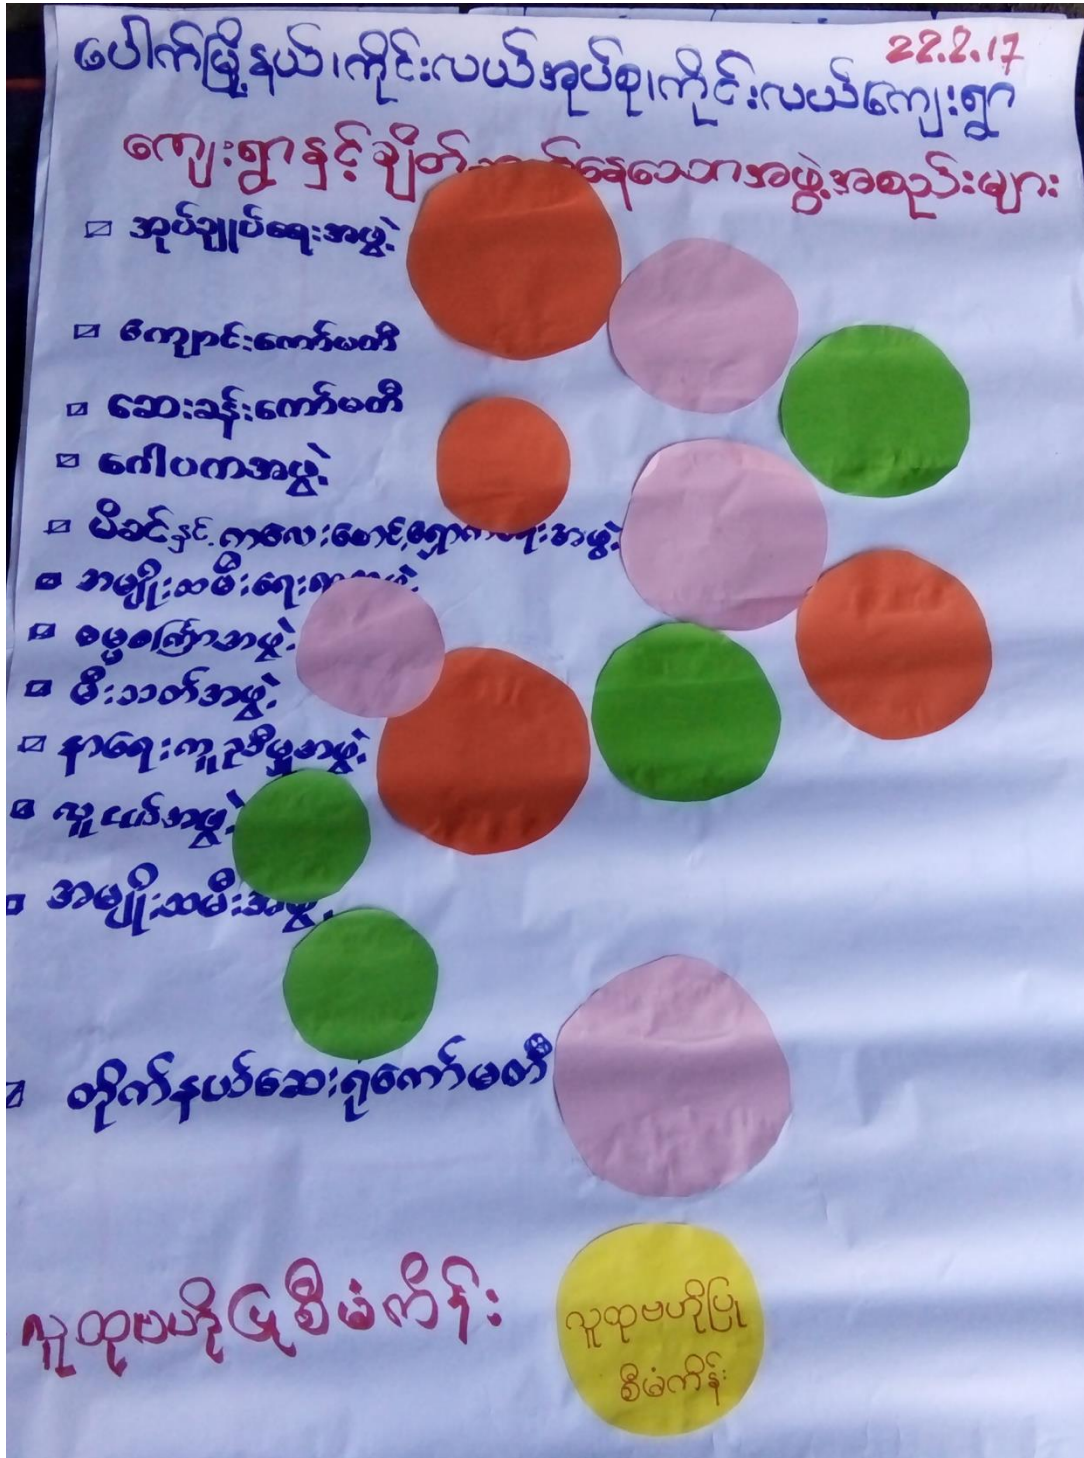 22.2.17
ပေါက်မြို့နယ်၊ကိုင်းလယ်အုပ်စု၊ကိုင်းလယ်ကျေးရွာ
ကျေးရွာနှင့်ချိတ်နေသောအဖွဲ့အစည်းများ
အုပ်ချုပ်ရေးအဖွဲ့
ကျောင်းကော်မတီ
ဆေးခန်းကော်မတီ
ဂေါပကအဖွဲ့
မိခင်နှင့်ကလေးစောင့်ရှောက်ရေးအဖွဲ့
အမျိုးသမီးရေးရာအဖွဲ့
ဓမ္မစကြာအဖွဲ့
မီးသတ်အဖွဲ့
နာရေးကူညီမှုအဖွဲ့
လူငယ်အဖွဲ့
အမျိုးသမီးအဖွဲ့
တိုက်နယ်ဆေးရုံကော်မတီ
လူထုဗဟိုပြုစီမံကိန်း
လူထုဗဟိုပြု
စီမံကိန်း